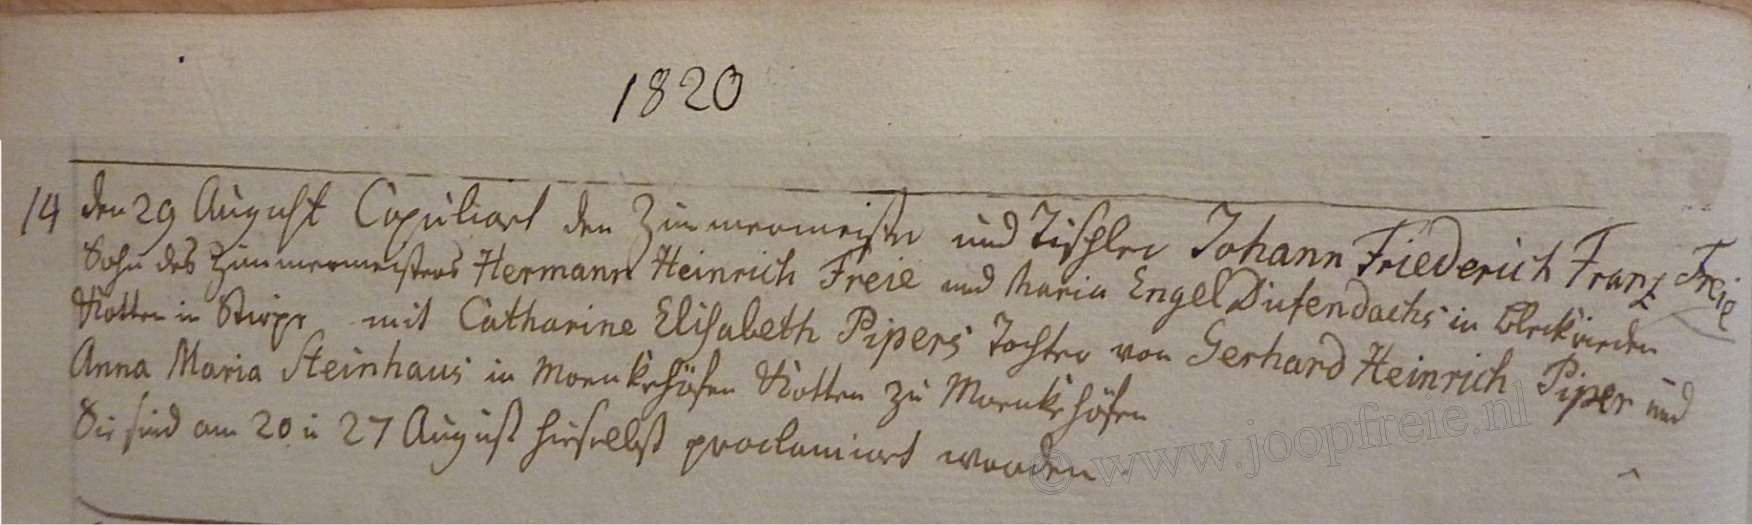 1820
14 den 29 August Copuliart den Zimmermeister und Tischler Johann Friederich Franz Freie
Sohn des Zimmermeisters Hermann Heinrich Freie und Maria Engel Dufendachs in
Kotten in Stirpe mit Catharine Elisabeth Pipers Tochter von Gerhard Heinrich Piper und
Anna Maria Steinhaus in Moenkehöfen Kotten zu Moenkehöfen
Sie sind am 20 u 27 August hieselbst proclamiert worden
© www.joopfreie.nl